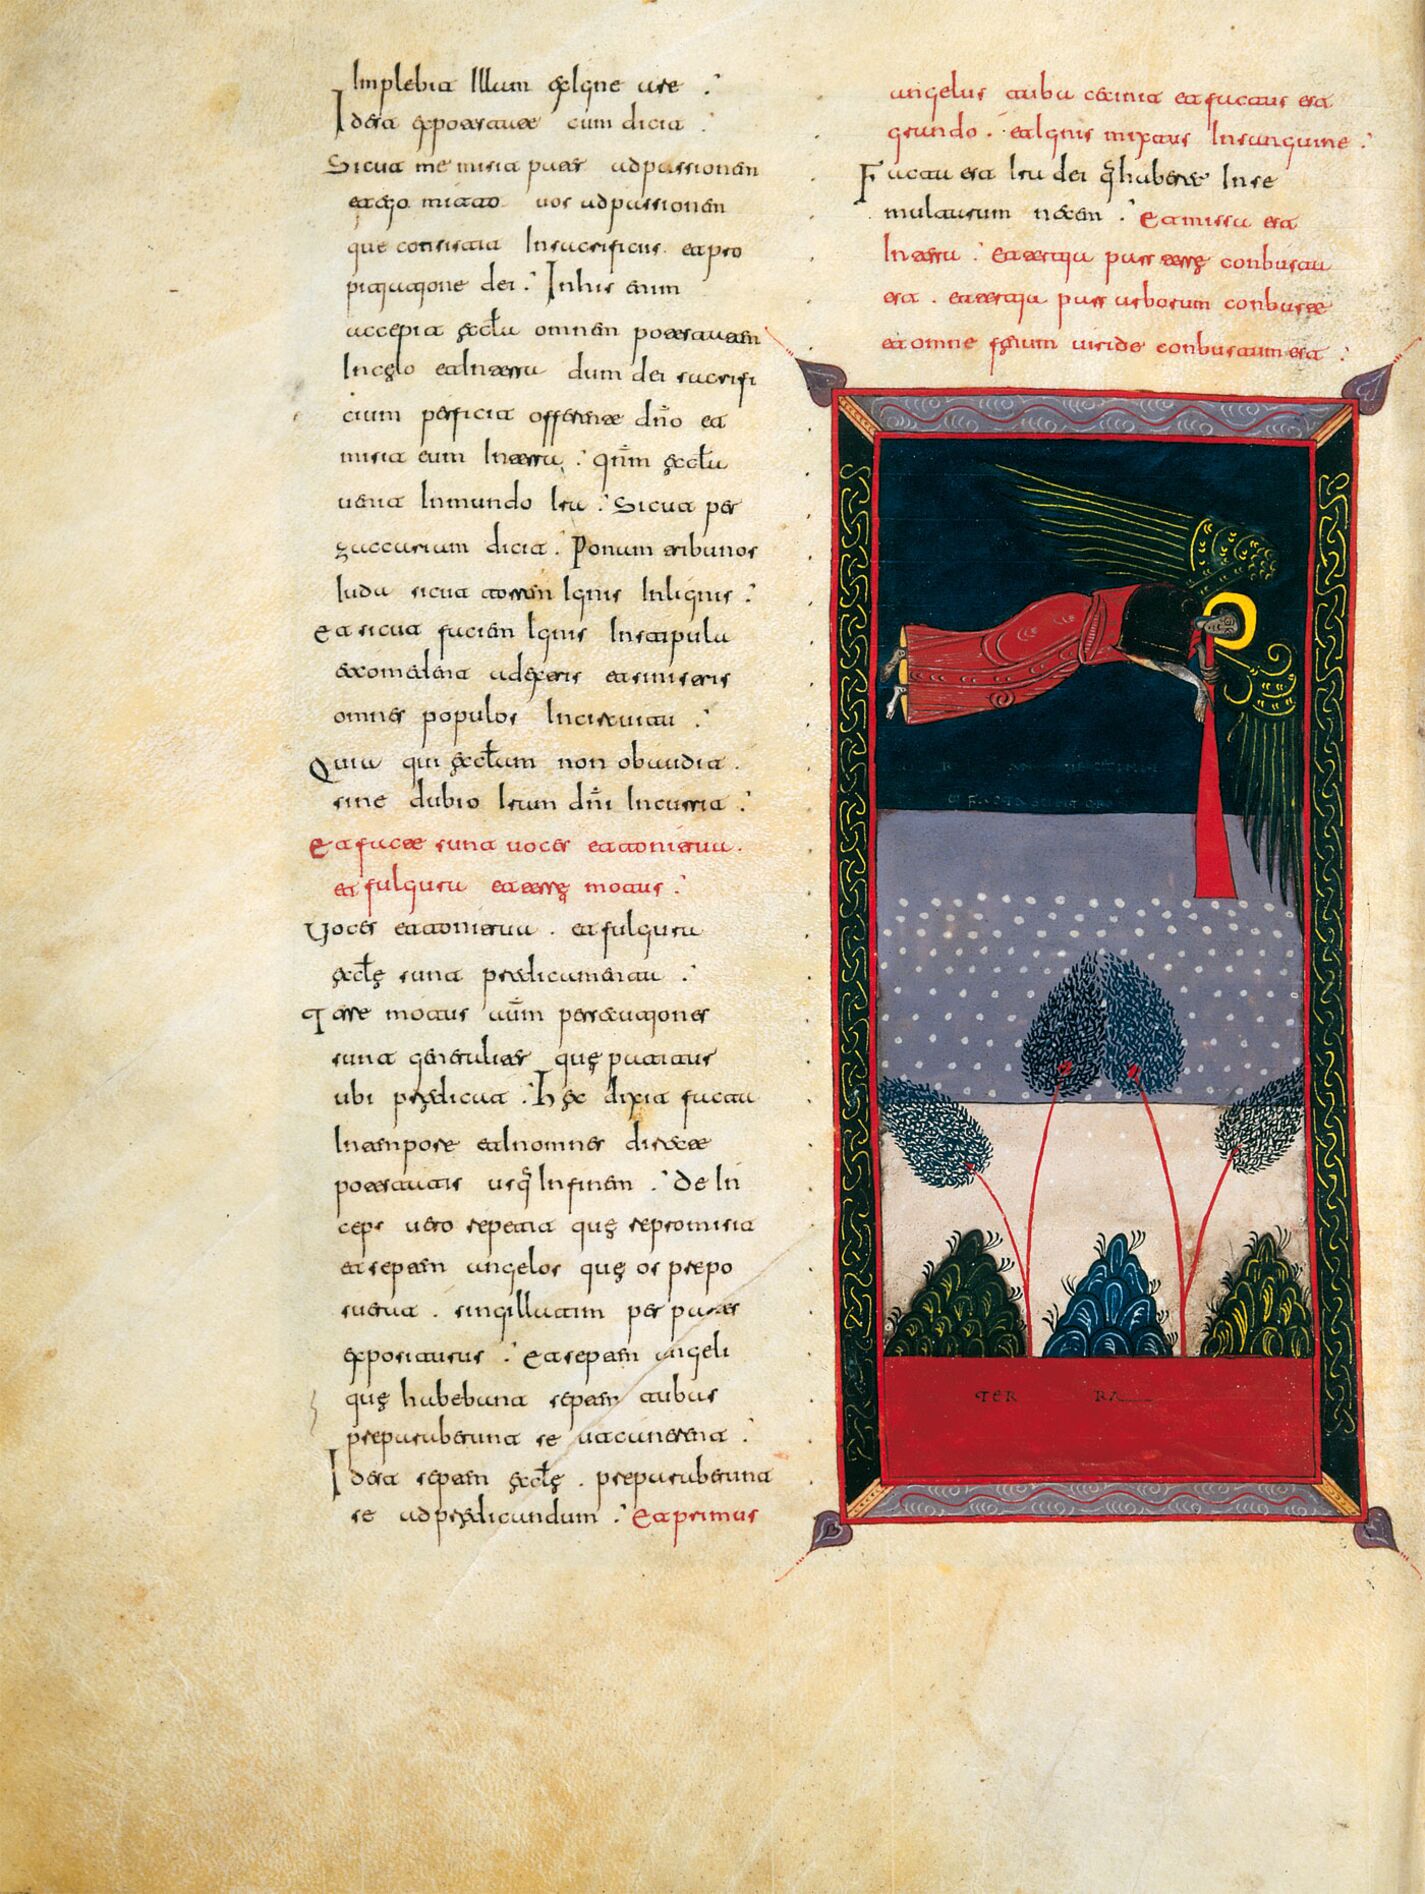 Implebit Illum exIgne are .
Id est ex potestate cum dicit .
Sicut me misit pater ad passionem
et ego mitto uos ad passionem
que consistit In sacrificiis et pro
pitiatione dei . In his enim
accepit ęccła omnem potestatem
In cęlo et In terra dum dei sacrifi
cium perficit offerre dño et
misit eum In terra . Qum̃ ęccła
uenit In mundo Ira . Sicut per
zaccarium dicit . Ponam tribunos
Iuda sicut torrem Ignis In lignis .
Et sicut faciem Ignis In stipula
et comedent ad dexteris et sinisteris
omnes populos In circuitu .
Quia qui ęccłam non obaudit .
sine dubio Iram dñi Incurrit .
Et facte sunt uoces et tonitrua .
et fulgura et terrę motus .
Uoces et tonitrua . et fulgura
ęccłę sunt predicamenta .
Terre motus aũm persecutiones
sunt generalies quę patitur
ubi prędicat . Hęc dixit facta
In tempore et In omnes directe
potestatis usq̃ In finem . De In
ceps uero repetit quę repromisit
et septem angelos quę os prepo
suerat . singillatim per partes
expositurus . Et septem angeli
quę habebant septem tubas
preparaberunt se ut canerent .
Id est septem ęccłę . preparaberunt
se ad prędicandum . Et primus
angelus tuba cecinit et factus est
grando . et Ignis mixtus In sanguine .
Facta est Ira dei q̃ haberet In se
multarum necem . Et missa est
In terra . et tertia pars terrę conbusta
est . et tertia pars arborum conbuste
et omne fęnum uiride conbustum est .
TER RA